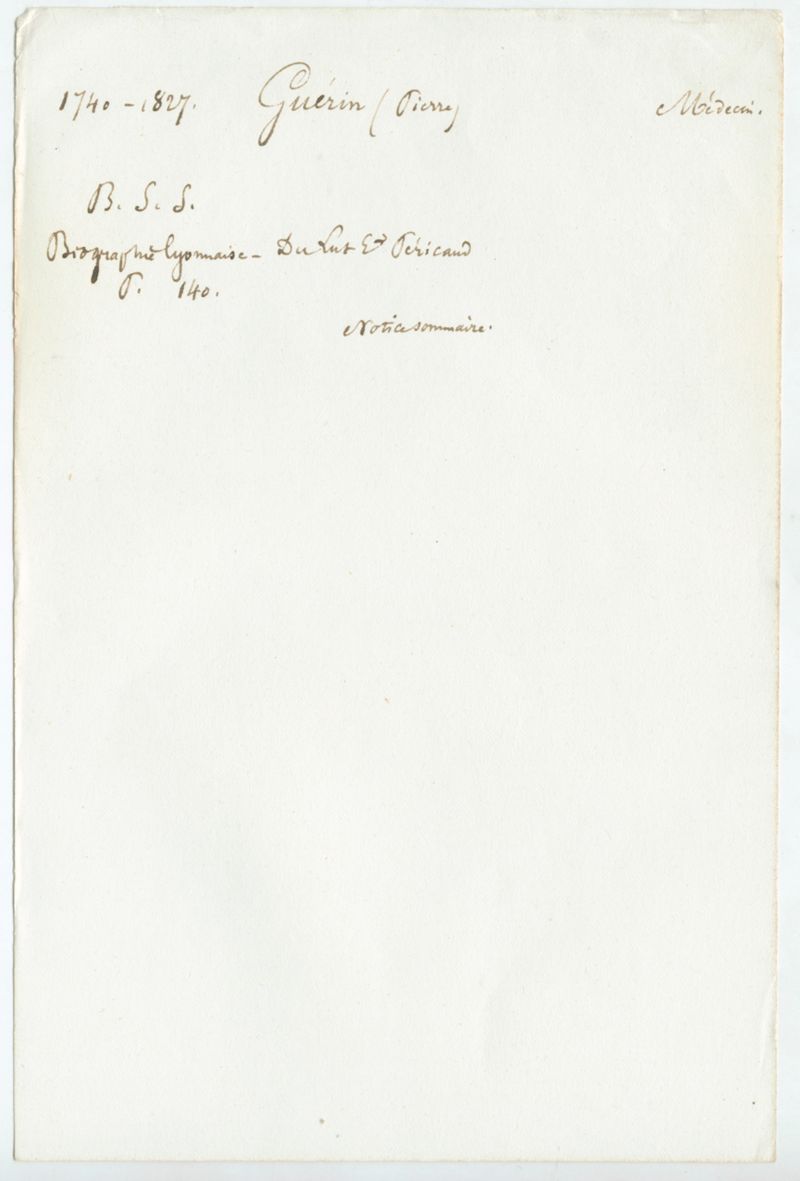 1740 - 1827. Guérin (Pierre) Médecin.
B. S. S.
Biographie lyonnaise - Du Lut Et Péricaud
P. 140.
Notice sommaire.